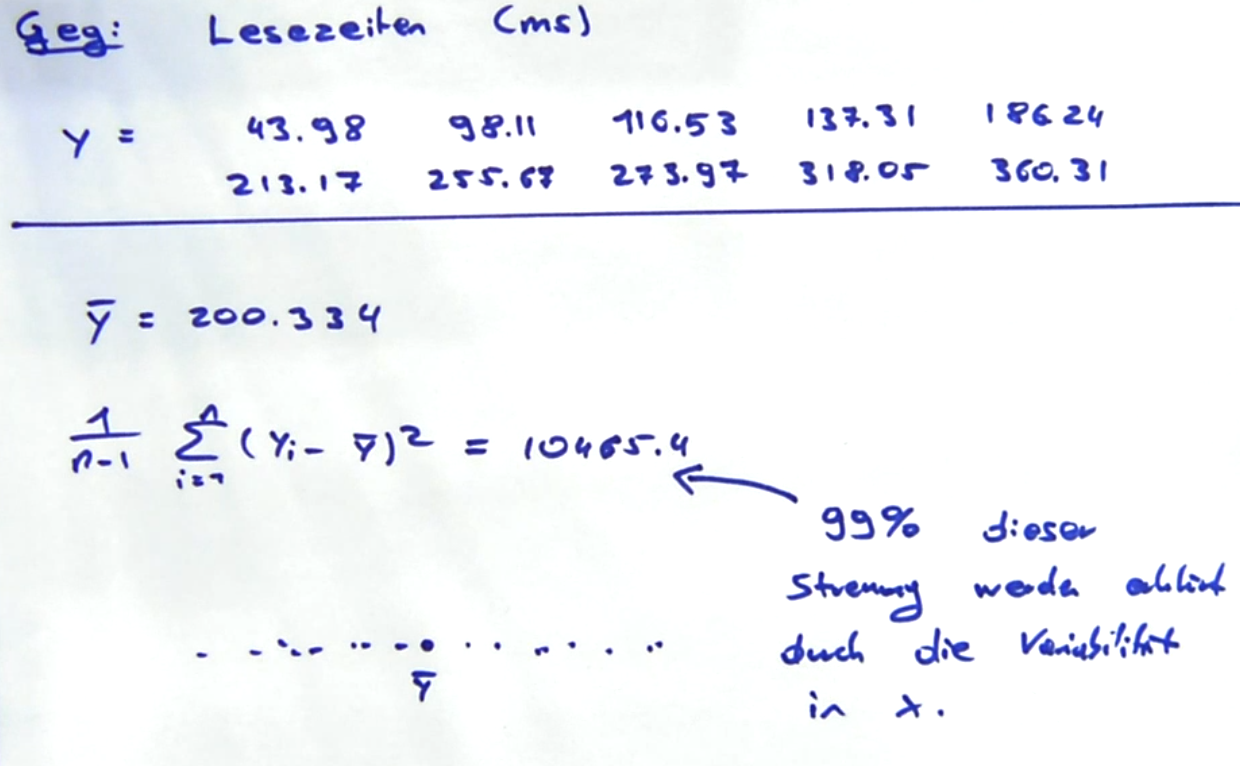 Geg: Lesezeiten (ms)
Y = 43.98 98.11 116.53 137.31 186.24
213.17 255.67 273.97 318.05 360.31
ȳ = 200.334
1/(n-1) Σ_{i=1}^{n} (Yi - ȳ)² = 10465.4
99% dieser
Streuung werden erklärt
durch die Variabilität
in x.
ȳ